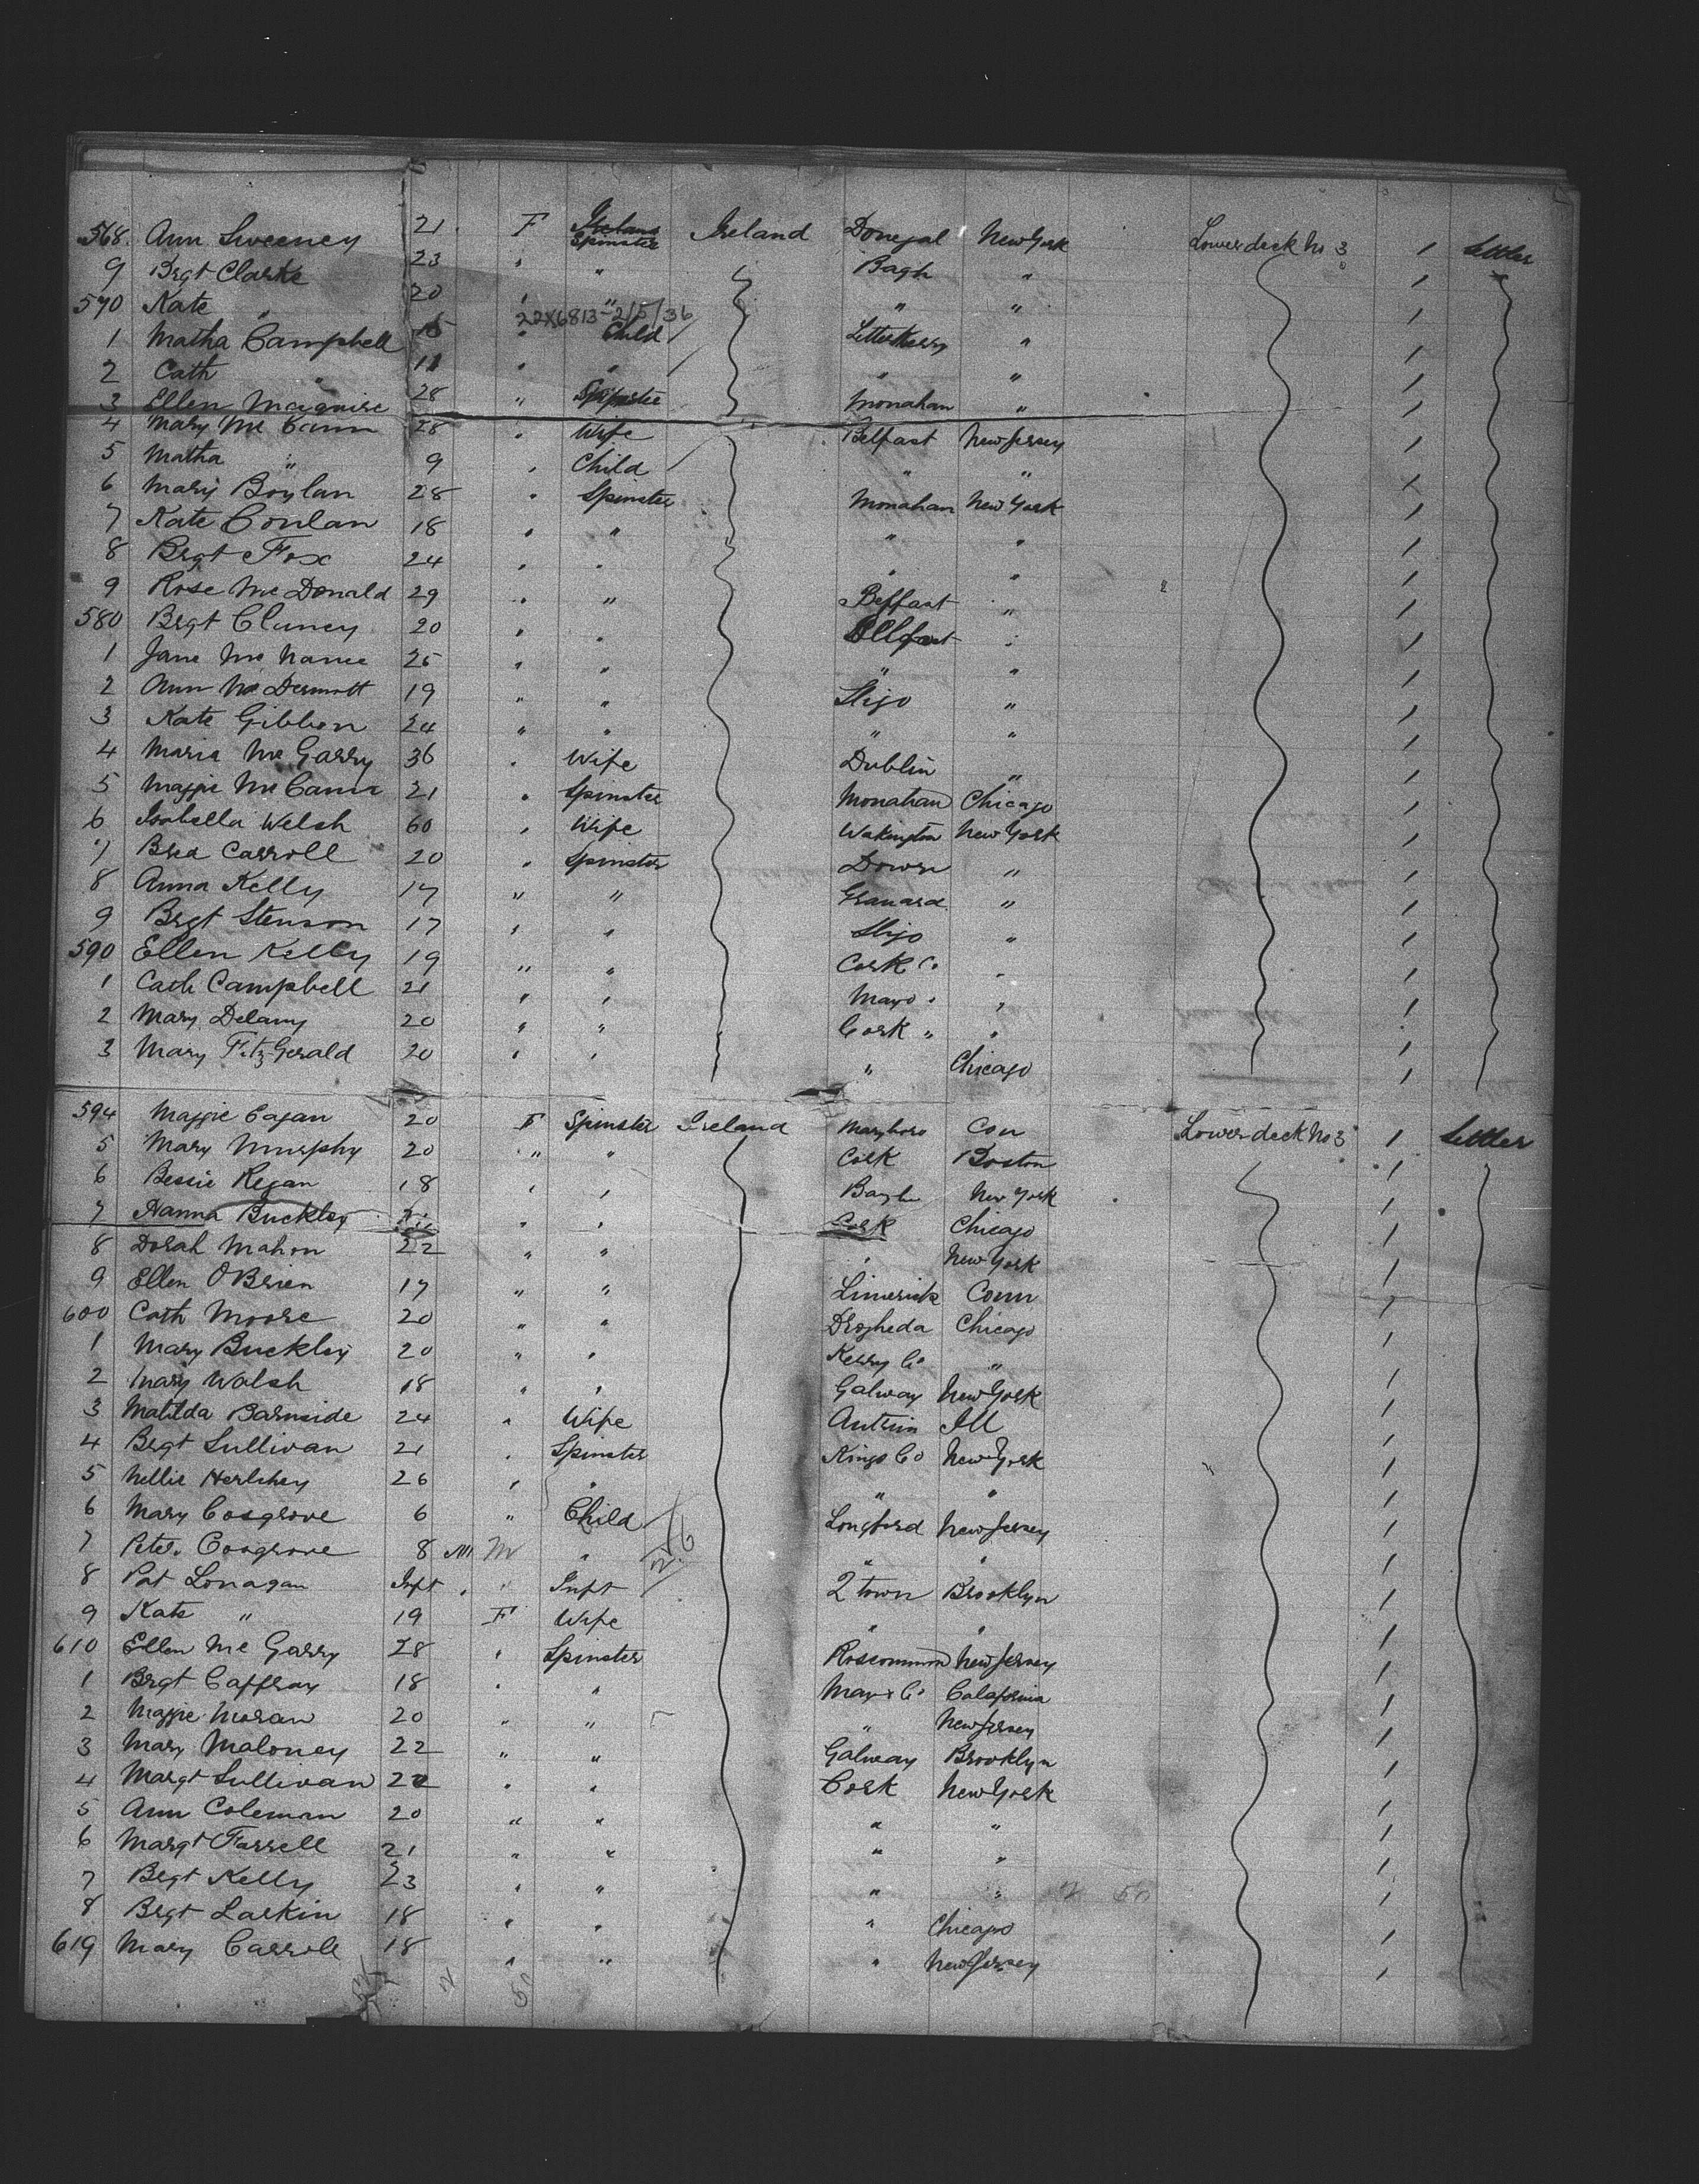 568. Ann Sweeney 21. F Spinster Ireland Donegal New York Lower deck No 3 1 Settler
9 Brgt Clarke 23 " " Bagh " 1
570 Kate " 20 " " " " 1
22X6813-2/5/36
1 Matha Campbell " Child Letterkerry " 1
2 Cath " 11 " " " " 1
3 Ellen Maguire 28 " Spinster Monahan " 1
4 Mary Mc Cann 28 " Wife Belfast New Jersey 1
5 Matha " 9 " Child " " 1
6 Mary Boylan 28 " Spinster Monahan New York 1
7 Kate Conlan 18 " " " " 1
8 Brgt Fox 24 " " " " 1
9 Rose Mc Donald 29 " " Belfast " 1
580 Brgt Clancy 20 " " Belfast " 1
1 Jane Mc Name 25 " " " " 1
2 Ann Mc Dermott 19 " " Sligo " 1
3 Kate Gibbon 24 " " " " 1
4 Maria Mc Garry 36 " Wife Dublin " 1
5 Maggie Mc Cann 21 " Spinster Monahan Chicago 1
6 Isabella Welsh 60 " Wife Wakington New York 1
7 Brid Carroll 20 " Spinster Down " 1
8 Anna Kelly 17 " " Granard " 1
9 Brgt Stenson 17 " " Sligo " 1
590 Ellen Kelly 19 " " Cork Co " 1
1 Cath Campbell 21 " " Mayo " " 1
2 Mary Delany 20 " " Cork " " 1
3 Mary Fitz Gerald 20 " " " Chicago 1
594 Maggie Eagan 20 F Spinster Ireland Maryboro Con Lower deck No 3 1 Settler
5 Mary Murphy 20 " " Cork Boston 1
6 Bessie Regan 18 " " Bagh New York 1
7 Hanna Buckley " " Cork Chicago 1
8 Dorah Mahon 22 " " " New York 1
9 Ellen O'Brien 17 " " Limerick Conn 1
600 Cath Moore 20 " " Drogheda Chicago 1
1 Mary Buckley 20 " " Kerry Co " 1
2 Mary Walsh 18 " " Galway New York 1
3 Matilda Barnside 24 " Wife Antrim Ill 1
4 Brgt Sullivan 21 " Spinster Kings Co New York 1
5 Nellie Herlihey 26 " " " " 1
6 Mary Cosgrove 6 " Child Longford New Jersey 1
7 Peter Cosgrove 8 M M " " " 1
8 Pat Lonagan Inft " " Inft 2 town Brooklyn 1
9 Kate " 19 F Wife " " 1
610 Ellen Mc Garry 28 " Spinster Roscommon New Jersey 1
1 Brgt Caffray 18 " " Mayo Co Calafornia 1
2 Maggie Moran 20 " " " New Jersey 1
3 Mary Maloney 22 " " Galway Brooklyn 1
4 Margt Sullivan 22 " " Cork New York 1
5 Ann Coleman 20 " " " " 1
6 Margt Farrell 21 " " " " 1
7 Brgt Kelly 23 " " " " 1
8 Brgt Larkin 18 " " " Chicago 1
619 Mary Carroll 18 " " " New Jersey 1